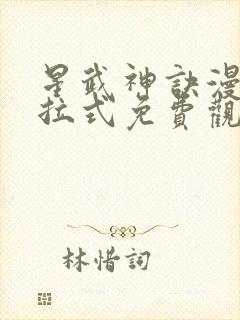 星武神訣漫
拉式免費觀
林惜詞